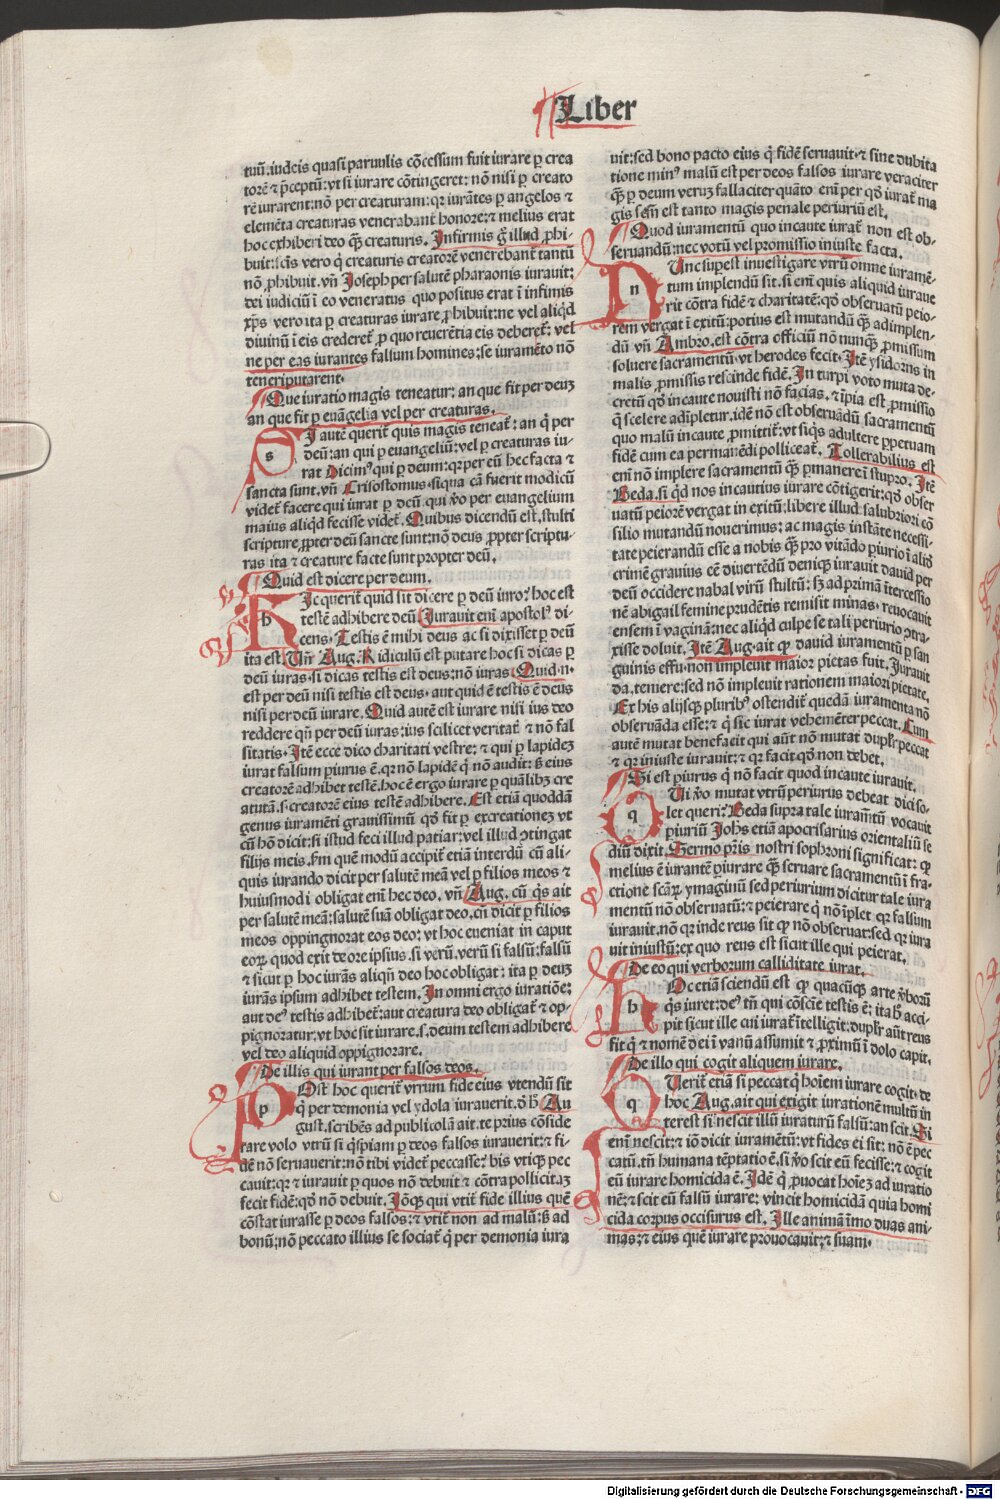 Liber
tuū. iudeis quasi paruulis cōcessum fuit iurare ꝑ crea
torē ⁊ p̄ceptū: vt si iurare cōtingeret: nō nisi ꝑ creato
rē iurarent: nō per creaturam: qꝛ iurātes ꝑ angelos ⁊
elemēta creaturas venerabant̄ honore: ⁊ melius erat
hoc exhiberi deo q̄ꝫ creaturis. Infirmis ḡ illud ꝓhi-
buit: scīs vero q̄ creaturis creatorē venerebant̄ tantū
nō ꝓhibuit. vn̄ Joseph per salutē pharaonis iurauit:
dei iudiciū ī eo veneratus quo positus erat ī infimis
xp̄s vero ita ꝑ creaturas iurare ꝓhibuit: ne vel aliqd̄
diuinū ī eis crederet̄ ꝓ quo reuerētia eis deberet̄: vel
ne per eas iurantes falsum homines: se iuramēto nō
teneri putarent.
Que iuratio magis teneatur: an que fit per deuꝫ
an que fit ꝑ euāgelia vel per creaturas.
s
SI autē querit̄ quis magis teneat̄: an q̄ per
deū: an qui ꝑ euangeliū: vel ꝑ creaturas iu-
rat Dicimꝰ qui ꝑ deum: qꝛ per eū hec facta ⁊
sancta sunt. vn̄ Crisostomus. siqua cā fuerit modicū
videt̄ facere qui iurat ꝑ deū. qui v̄o per euangelium
maius aliqd̄ fecisse videt̄. Quibus dicendū est. stulti
scripture ꝓpter deū sancte sunt: nō deus ꝓpter scriptu-
ras ita ⁊ creature facte sunt propter deū.
Quid est dicere per deum.
h
HIc querit̄ quid sit dicere ꝑ deū iuro: hoc est
testē adhibere deū Jurauit eni apostolꝰ di
cens. Testis ē mihi deus ac si dixisset ꝑ deū
ita est. Un̄ Aug. Ridiculū est putare hoc si dicas ꝑ
deū iuras. si dicas testis est deus: nō iuras. Quid.n.
est per deū nisi testis est deus. aut quid ē testis ē deus
nisi per deū iurare. Quid autē est iurare nisi ius deo
reddere qn̄ per deū iuras: ius scilicet veritat̄ ⁊ nō fal
sitatis. Itē ecce dico charitati vestre: ⁊ qui ꝑ lapideꝫ
iurat falsum ꝑiurus ē. qꝛ nō lapidē q̄ nō audit: s̄ꝫ eius
creatorē adhibet testē. hoc ē ergo iurare ꝑ quālibꝫ cre
aturā. s. creatorē eius testē adhibere. Est etiā quoddā
genus iuramēti grauissimū qd̄ fit ꝑ excreationeꝫ vt
cū hō dicit: si istud feci illud patiar: vel illud ↄtingat
filijs meis. s̄m quē modū accipit̄ etiā interdū cū ali-
quis iurando dicit per salutē meā vel ꝑ filios meos ⁊
huiusmodi obligat eni hec deo. vn̄ Aug. cū q̄s ait
per salutē meā: salutē suā obligat deo. cū dicit ꝑ filios
meos oppingnorat eos deo: vt hoc eueniat in caput
eorꝝ quod exit de ore ipsius. si verū. verū si falsū: falsū
⁊ sicut ꝑ hoc iurās aliqn̄ deo hoc obligat: ita ꝑ deuꝫ
iurās ipsum adhibet testem. In omni ergo iuratiōe:
aut deꝰ testis adhibet̄: aut creatura deo obligat̄ ⁊ op-
pignoratur: vt hoc sit iurare. s. deum testem adhibere
vel deo aliquid oppignorare.
De illis qui iurant per falsos deos.
p
POst hoc querit̄ vtrum fide eius vtendū sit
q̄ per demonia vel ydola iurauerit. d̄ h̄ Au
gust. scribēs ad publicolā ait. te prius cōside
rare volo vtrū si q̄spiam ꝑ deos falsos iurauerit: ⁊ fi-
dē nō seruauerit: nō tibi videt̄ peccasse: bis vtiqꝫ pec
cauit: qꝛ ⁊ iurauit ꝑ quos nō debuit ⁊ cōtra pollicit.aꝫ
fecit fidē: qd̄ nō debuit. Ioqꝫ qui vtit̄ fide illius quē
cōstat iurasse ꝑ deos falsos: ⁊ vtit̄ non ad malū: s̄ꝫ ad
bonū: nō peccato illius se sociat̄ q̄ per demonia iura
uit: sed bono pacto eius q̄ fidē seruauit. ⁊ sine dubita
tione minꝰ malū est per deos falsos iurare veraciter
q̄ꝫ ꝑ deum veruꝫ fallaciter quāto eni per qd̄ iurat̄ ma
gis sc̄m est tanto magis penale periuriū est.
Quod iuramentū quo incaute iurat̄ non est ob-
seruandū: nec votū vel promissio iniuste facta.
n
NUnc suꝑest inuestigare vtrū omne iuramē-
tum implendū sit. si eni quis aliquid iuraue
rit cōtra fidē ⁊ charitatē: qd̄ obseruatū peio-
rem vergat ī exitū: potius est mutandū q̄ꝫ adimplen-
dū vn̄ Ambro. est cōtra officiū nō nunqꝫ ꝓmissum
soluere sacramentū. vt herodes fecit. Itē ysidorus in
malis ꝓmissis rescinde fidē. In turpi voto muta de-
cretū qd̄ incaute nouisti nō facias. ⁊ īpia est ꝓmissio
q̄ scelere adīpletur. idē nō est obseruādū sacramentū
quo malū incaute ꝓmittit̄: vt siq̄s adultere ꝑpetuam
fidē cum ea permanēdi polliceat̄. Tollerabilius est
eni nō implere sacramentū q̄ꝫ ꝑmanere ī stupro. Itē
Beda. si q̄d nos incautius iurare cōtigerit: qd̄ obser
uatū peiorē vergat in exitū: libere illud salubriori cō
silio mutandū nouerimus: ac magis instāte necessi-
tate peierandū esse a nobis q̄ꝫ pro vitādo ꝑiurio ī aliō
crimē grauius eē diuertēdū denicꝫ iurauit dauid per
deū occidere nabal virū stultū: sꝫ ad primā ītercessio
nē abigail femine prudētis remisit minas. reuocauit
ensem ī vaginā: nec aliqd̄ culpe se tali periurio ↄtra-
xisse doluit. Itē Aug. ait qꝫ dauid iuramentū ꝑ san
guinis effu. non impleuit maior pietas fuit. Jurauit
da. temere: sed nō impleuit rationem maiori pietate.
Ex his alijsqꝫ pluribꝰ ostendit̄ quedā iuramenta nō
obseruāda esse: ⁊ q̄ sic iurat vehemēter peccat. Cum
autē mutat benefaceit qui aūt nō mutat dupl'r peccat
⁊ qꝛ iniuste iurauit: ⁊ qꝛ facit qd̄ non debet.
Si est ꝑiurus q̄ nō facit quod incaute iurauit.
q
QUi v̄o mutat vtrū periurus debeat dici so-
let queri: Beda supra tale iuram̄tū vocauit
ꝑiuriū Johs etiā apocrisarius orientaliū se
diū dixit. Sermo pr̄is nostri sophroni significat: qꝫ
melius ē iurantē ꝑiurare q̄ꝫ seruare sacramentū ī fra-
ctione scāꝝ ymaginū sed periurium dicitur tale iura
mentū nō obseruatū: ⁊ peierare q̄ nō īplet qꝛ falsum
iurauit. nō qꝛ inde reus sit qꝫ nō obseruat: sed qꝛ iura
uit iniustū: ex quo reus est sicut ille qui peierat.
De eo qui verborum calliditate iurat.
h
HOc etiā sciendū est qꝫ quacūqꝫ arte v̄boꝝ
q̄s iuret: deꝰ tn̄ qui cōscīe testis ē: ita h̄ acci-
pit sicut ille cui iurat̄ ītelligit. dupl'r aūt reus
fit q̄ ⁊ nomē dei ī vanū assumit ⁊ ꝓximū ī dolo capit.
De illo qui cogit aliquem iurare.
q
QUerit̄ etiā si peccat q̄ hoīem iurare cogit. de
hoc Aug. ait qui exigit iurationē multū in
terest si nescit illū iuraturū falsū: an scit. Si
eni nescit: ⁊ iō dicit iuramētū: vt fides ei sit: nō ē pec
catū. tn̄ humana tēptatio ē. si v̄o scit eū fecisse: ⁊ cogit
eū iurare homicida ē. Idē q̄ ꝓuocat hoīeꝫ ad iuratio
nē: ⁊ scit eū falsū iurare: vincit homicidā quia homi
cida corpus occisurus est. Ille animā īmo duas ani-
mas: ⁊ eius quē iurare prouocauit: ⁊ suam.
Digitalisierung gefördert durch die Deutsche Forschungsgemeinschaft - DFG